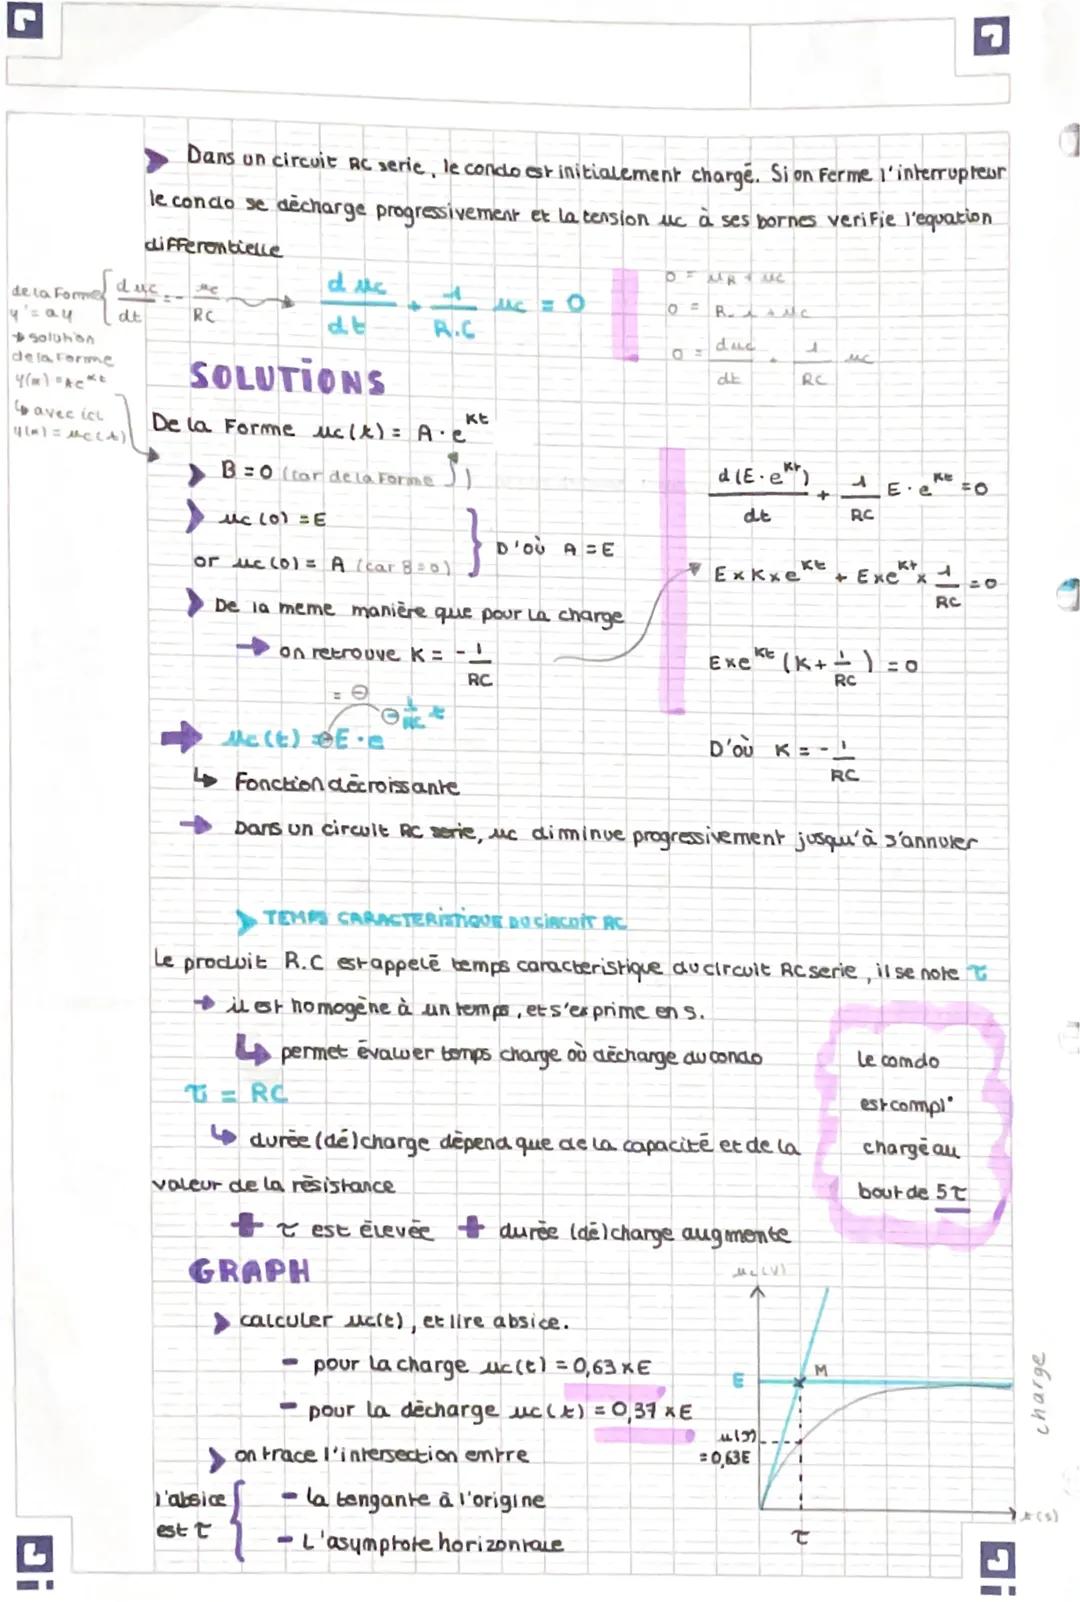 ➤ Dans un circuit RC serie, le condo est initialement chargē. Si on Ferme l'interrupteur
le condo se dēcharge progressivement et la tension uc à ses bornes verifie l'equation
differentielle
de la Forme
y' = ay
→ solution
de la Forme
↳ avec ici
duc/dt = - uc/RC → duc/dt + 1/R.C uc = 0
0 = uR + uc
0 = R.i + uc
0 = duc/dt + 1/RC uc
SOLUTIONS
De la Forme uc(t) = A·e^Kt
➤ B = 0 (car de la Forme ↑)
➤ uc(0) = E
or uc(0) = A (car B=0)
D'où A = E
➤ De la meme manière que pour la charge
→ on retrouve K = -1/RC
d(E·e^Kt)/dt + 1/RC E·e^Kt = 0
E×K×e^Kt + E×e^Kt × 1/RC = 0
E×e^Kt (K + 1/RC) = 0
D'où K = -1/RC
= ⊖
➡ uc(t) = E·e^-1/RC t
↳ Fonction dēcroissante
→ Dans un circuit RC serie, uc diminue progressivement jusqu'à s'annuler
➤ TEMPS CARACTERISTIQUE DU CIRCUIT RC
Le produit R.C est appelē temps caracteristique du circuit RC serie, il se note τ
→ il est homogène à un temps, et s'exprime en s.
↳ permet ēvaluer temps charge où dēcharge du condo
τ = RC
↳ durēe (dē)charge dēpend que de la capacitē et de la
valeur de la rēsistance
+ τ est ēlevēe + durēe (dē)charge augmente
Le comdo
est compl°
chargē au
bout de 5τ
GRAPH
➤ calculer uc(t), et lire absice.
- pour la charge uc(t) = 0,63×E
- pour la dēcharge uc(t) = 0,37×E
➤ on trace l'intersection emtre
l'absice
est τ
- la tangante à l'origine
- L'asymptote horizontale
uc(V)
E
M
u(τ)
= 0,63E
τ
t(s)
charge